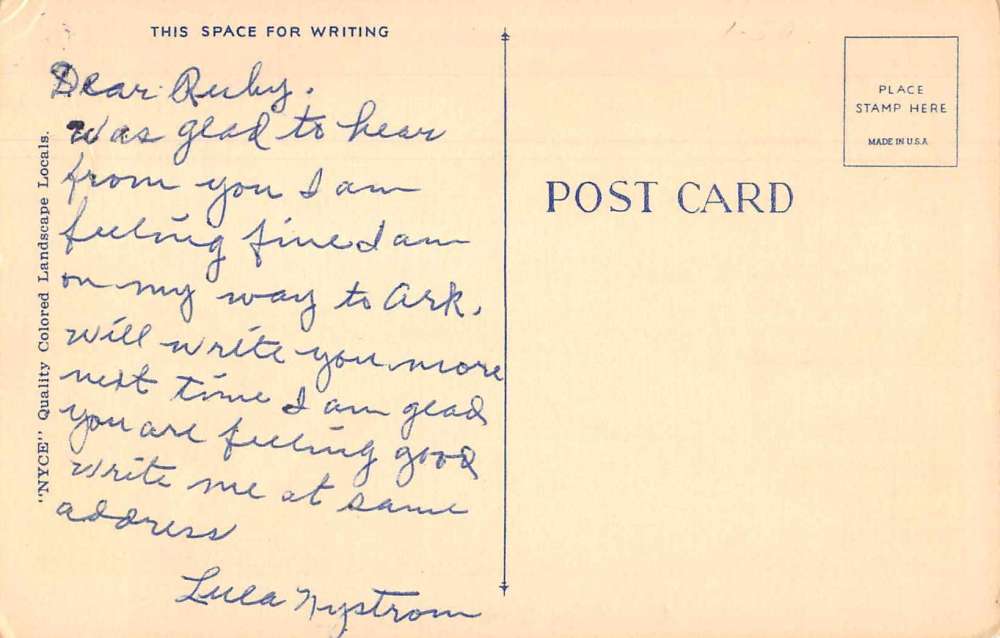 THIS SPACE FOR WRITING
Dear Ruby.
Was glad to hear
from you I am
feeling fine I am
on my way to Ark.
will write you more
next time I am glad
you are feeling good
write me at same
address
Nystrom
"NYCE" Quality Colored Landscape Locals.
POST CARD
PLACE
STAMP HERE
MADE IN U.S.A